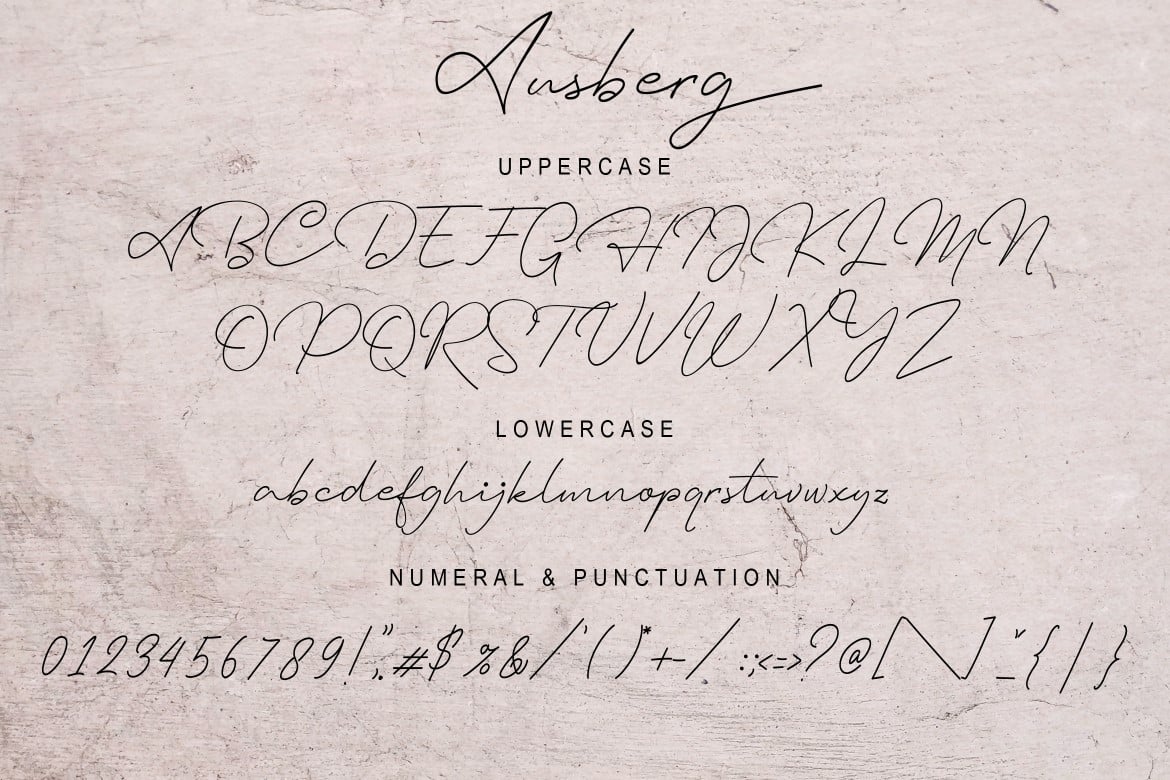 Ausberg
UPPERCASE
ABCDEFGHIJKLMN
OPQRSTUVWXYZ
LOWERCASE
abcdefghijklmnopqrstuvwxyz
NUMERAL & PUNCTUATION
0123456789!",.#$%&/'()*+-/:;<=>?@[\]_ˇ{|}